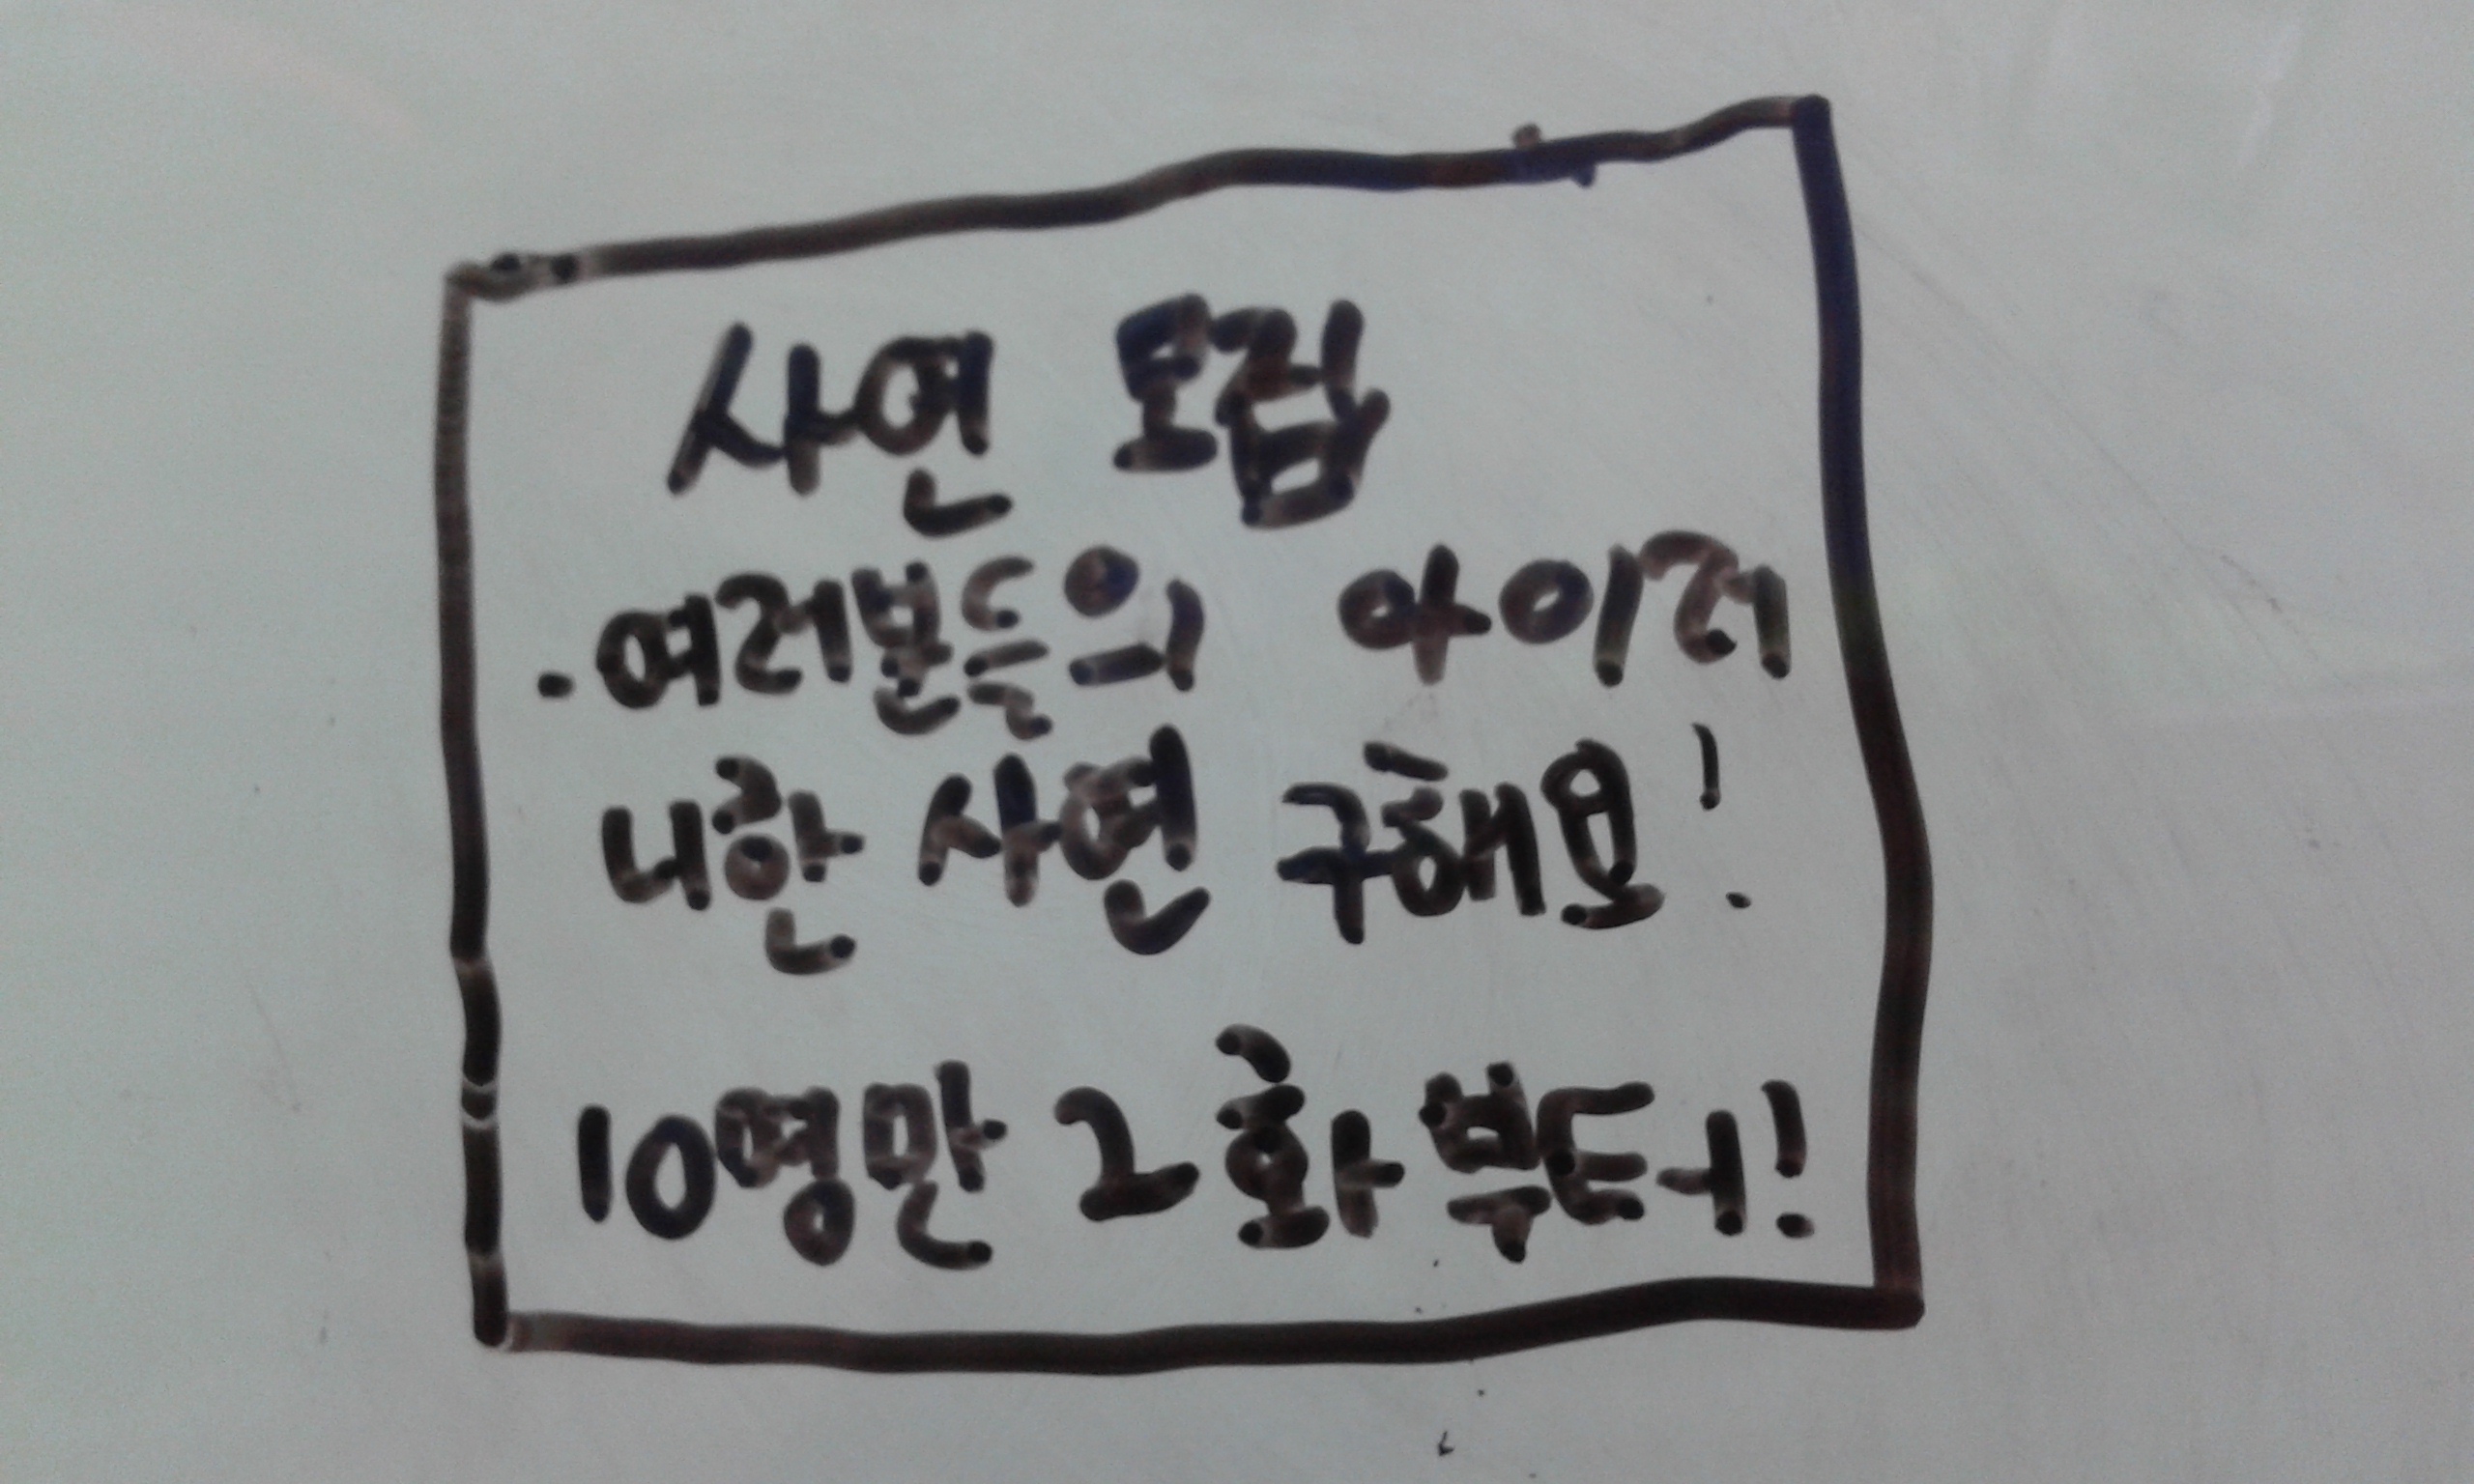 사연 모집
·여러분들의 아이러
니한 사연 구해요!
10명만 2화부터!